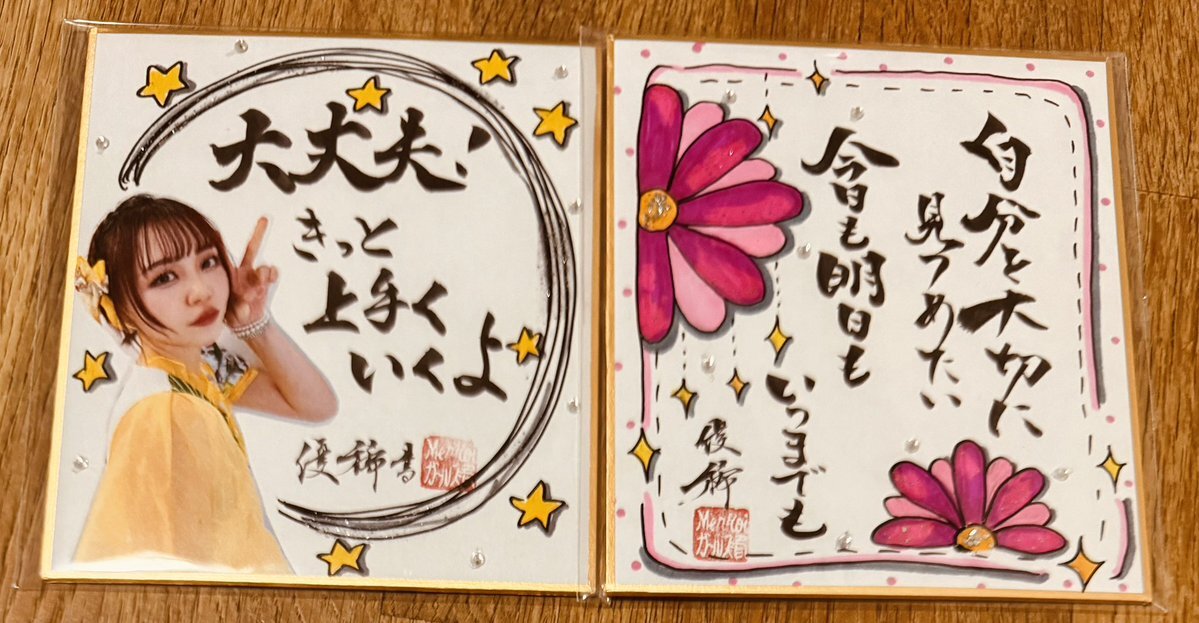 大丈夫!
きっと
上手く
いくよ
優稀書
自分を大切に
見つめたい
今日も明日も
いつまでも
ガールズ
ガールズ